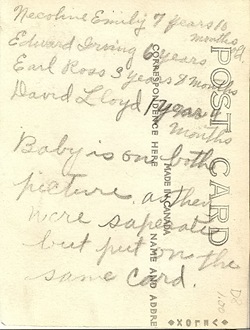 Necoline Emily 7 years 10
months old
Edward Irving 6 years
Earl Ross 3 years 9 months
David Lloyd 1 year 4
months
Baby is on both
picture as they
were saperate
but put on the
same card.
POST CARD
CORRESPONDENCE HERE
MADE IN CANADA
NAME AND ADDRE